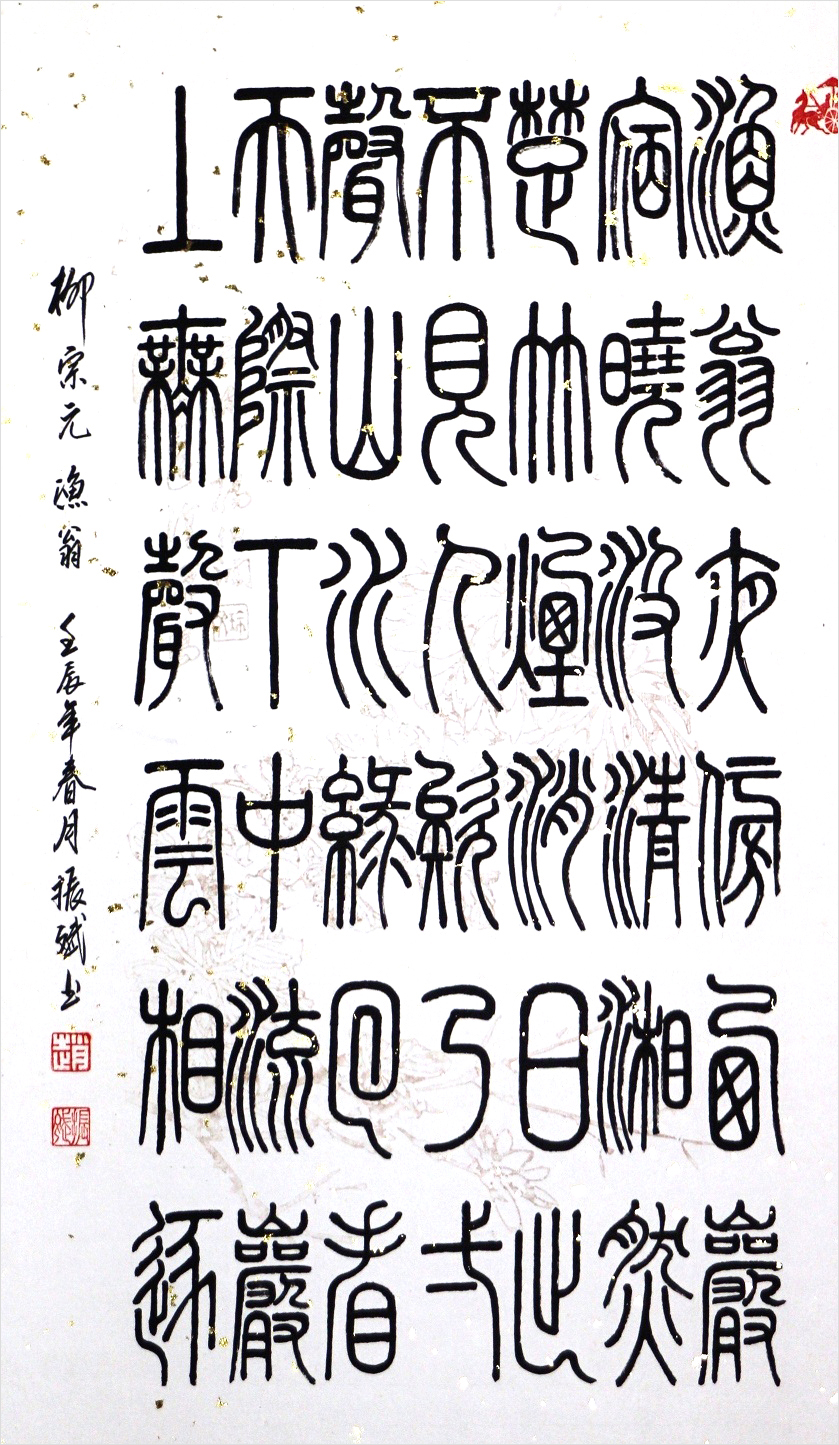 漁翁夜傍西巖
宿曉汲清湘然
楚竹煙消日出
不見人欸乃弌
聲山水綠回看
天際下中流巖
上無聲雲相逐
柳宗元 渔翁 壬辰年春月振斌书
趙
振斌